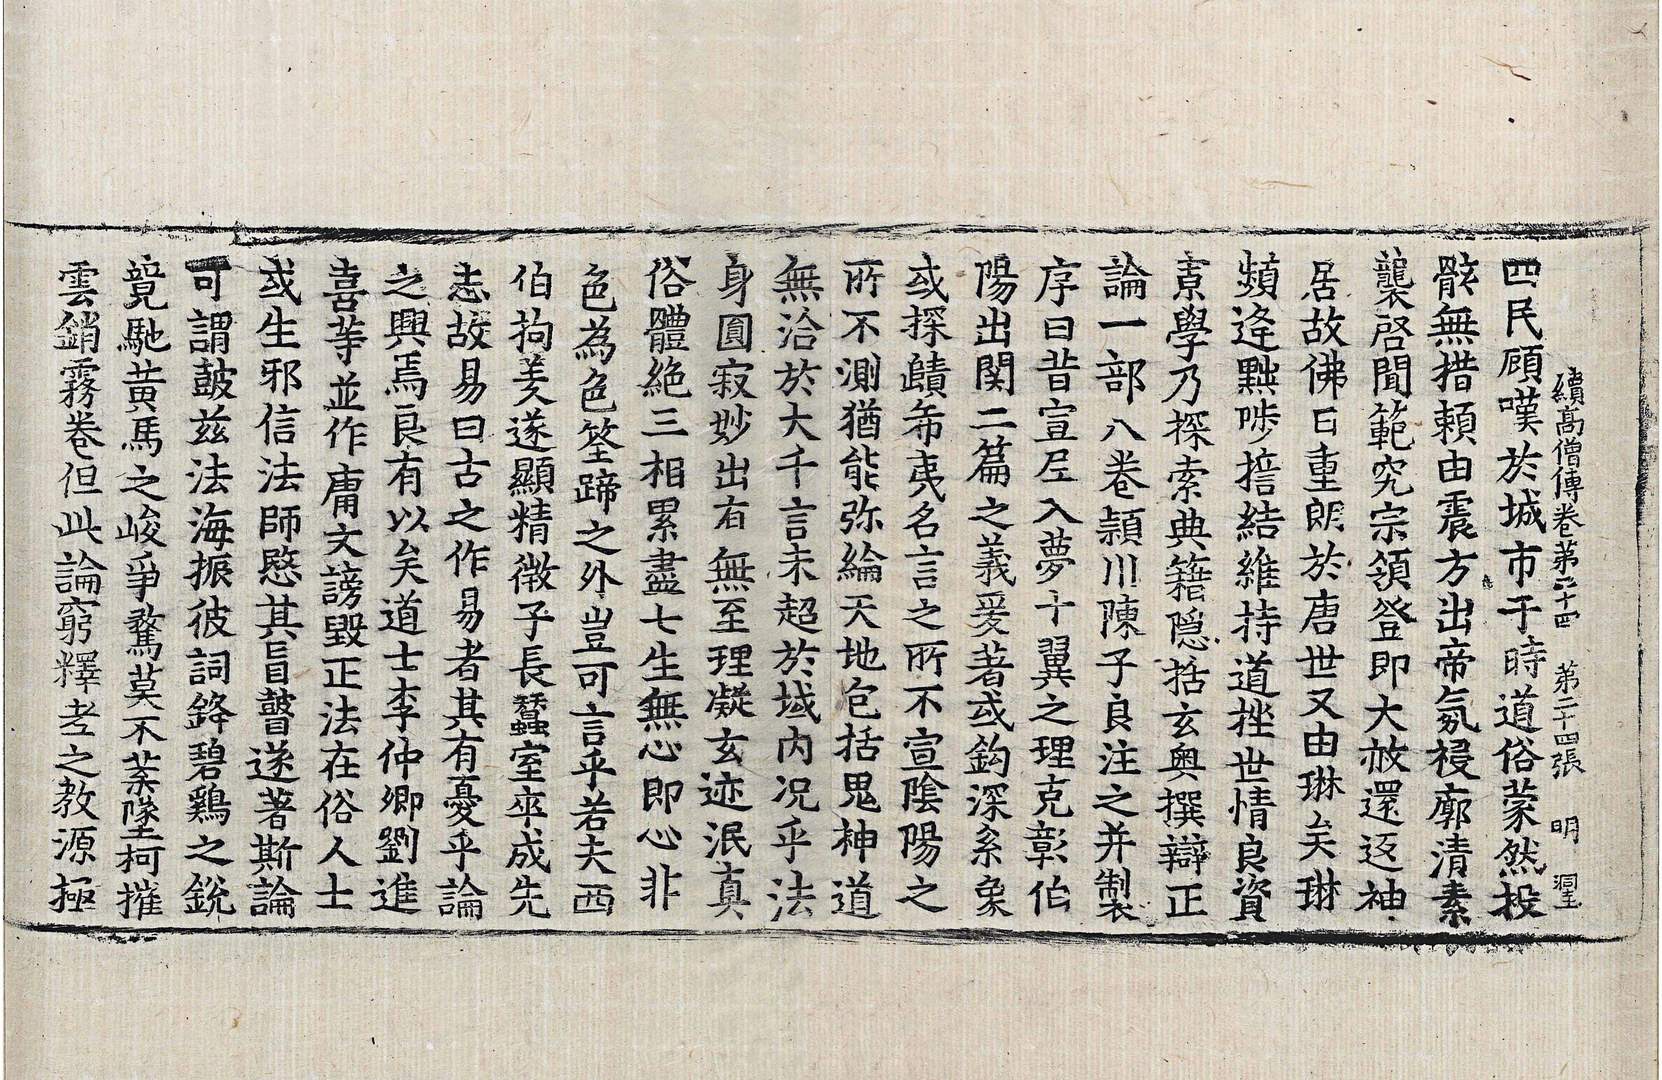 續高僧傳卷第二十四 第二十四張 明 瑆
四民顧嘆於城市于時道俗蒙然投
骸無措賴由震方出帝氛祲廓清素
襲啓聞範究宗領登即大赦還返神
居故佛日重朗於唐世又由琳矣琳
頻逢黜陟誓結維持道挫世情良資
寡學乃探索典籍隱括玄奧撰辯正
論一部八卷穎川陳子良注之并製
序曰昔宣尼入夢十翼之理克彰伯
陽出関二篇之義爰著或鈎深系象
或探賾希夷名言之所不宣陰陽之
所不測猶能弥綸天地包括鬼神道
無洽於大千言未超於域内況乎法
身圓寂妙出有無至理凝玄迹泯真
俗體絶三相累盡七生無心即心非
色為色筌蹄之外豈可言乎若夫西
伯拘羑遂顯精徵子長蠶室卒成先
志故易曰古之作易者其有憂乎論
之興焉良有以矣道士李仲卿劉進
喜等並作庸文謗毀正法在俗人士
或生邪信法師愍其盲瞽遂著斯論
可謂鼓茲法海振彼詞鋒碧鷄之銳
競馳黃馬之峻爭騖莫不葉墜柯摧
雲銷霧卷但此論窮釋老之教源極